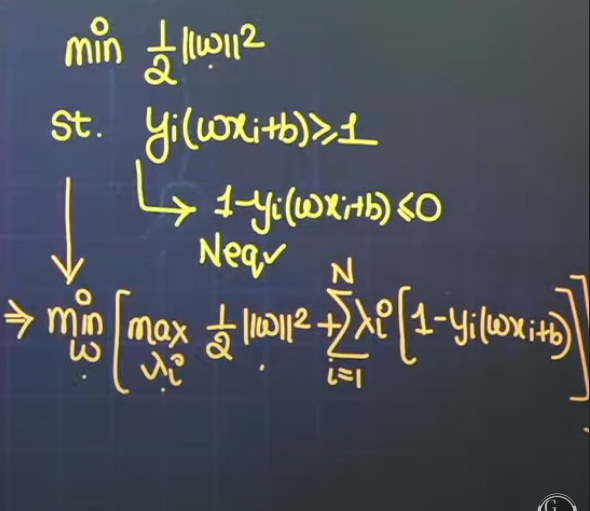 min 1/2 ||w||²
St. yi(wxi+b)≥1
→ 1-yi(wxi+b) ≤0
Neqv
⇒ min_w [max_λi 1/2 ||w||² + Σ_{i=1}^{N} λi [1-yi(wxi+b)]]
G